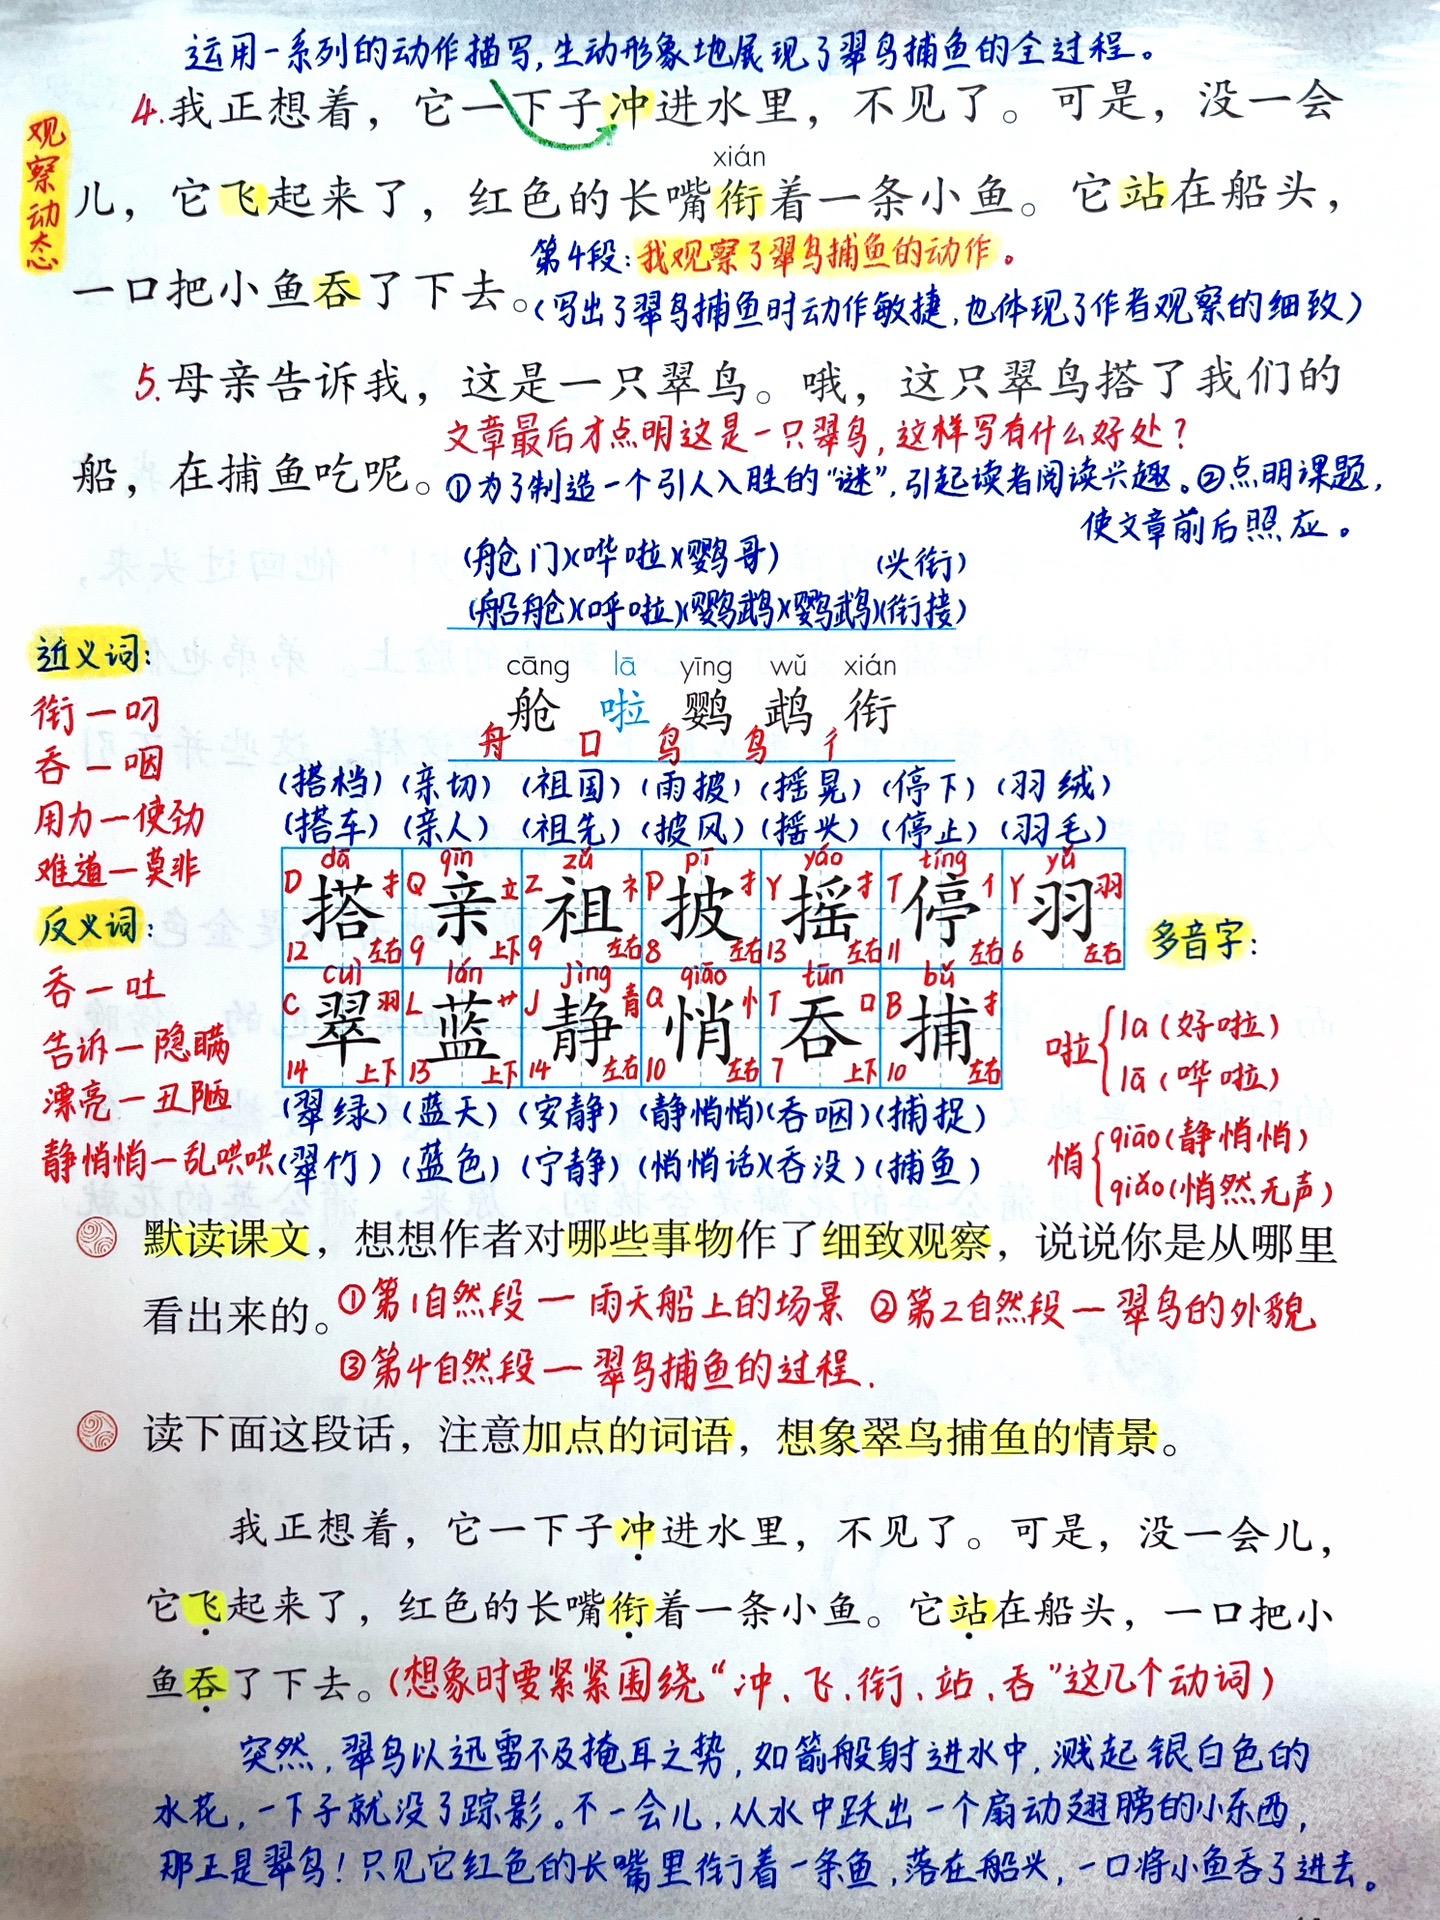 运用一系列的动作描写,生动形象地展现了翠鸟捕鱼的全过程。
4.我正想着，它一下子冲进水里，不见了。可是，没一会
观察动态
xián
儿，它飞起来了，红色的长嘴衔着一条小鱼。它站在船头，
第4段:我观察了翠鸟捕鱼的动作。
一口把小鱼吞了下去。(写出了翠鸟捕鱼时动作敏捷,也体现了作者观察的细致)
5.母亲告诉我，这是一只翠鸟。哦，这只翠鸟搭了我们的
文章最后才点明这是一只翠鸟,这样写有什么好处?
船，在捕鱼吃呢。①为了制造一个引人入胜的“谜”,引起读者阅读兴趣。②点明课题,
使文章前后照应。
(舱门)(哗啦)(鹦哥) (头衔)
(船舱)(呼啦)(鹦鹉)(鹦鹉)(衔接)
cāng lā yīng wǔ xián
舱 啦 鹦 鹉 衔
舟 口 鸟 鸟 彳
近义词:
衔—叼
吞—咽
用力—使劲
难道—莫非
反义词:
吞—吐
告诉—隐瞒
漂亮—丑陋
静悄悄—乱哄哄
(搭档)(亲切)(祖国)(雨披)(摇晃)(停下)(羽绒)
(搭车)(亲人)(祖先)(披风)(摇头)(停止)(羽毛)
dā qīn zǔ pī yáo tíng yǔ
D 搭 扌 Q 亲 立 Z 祖 礻 P 披 扌 Y 摇 扌 T 停 亻 Y 羽 羽
12 左右 9 上下 9 左右 8 左右 13 左右 11 左右 6 左右
cuì lán jìng qiāo tūn bǔ
C 翠 羽 L 蓝 艹 J 静 青 Q 悄 忄 T 吞 口 B 捕 扌
14 上下 13 上下 14 左右 10 左右 7 上下 10 左右
(翠绿)(蓝天)(安静)(静悄悄)(吞咽)(捕捉)
(翠竹)(蓝色)(宁静)(悄悄话)(吞没)(捕鱼)
多音字:
啦{la(好啦)
lā(哗啦)
悄{qiāo(静悄悄)
qiǎo(悄然无声)
默读课文，想想作者对哪些事物作了细致观察，说说你是从哪里
看出来的。①第1自然段—雨天船上的场景 ②第2自然段—翠鸟的外貌
③第4自然段—翠鸟捕鱼的过程.
读下面这段话，注意加点的词语，想象翠鸟捕鱼的情景。
我正想着，它一下子冲进水里，不见了。可是，没一会儿，
它飞起来了，红色的长嘴衔着一条小鱼。它站在船头，一口把小
鱼吞了下去。(想象时要紧紧围绕“冲、飞、衔、站、吞”这几个动词)
突然,翠鸟以迅雷不及掩耳之势,如箭般射进水中,溅起银白色的
水花,一下子就没了踪影。不一会儿,从水中跃出一个扇动翅膀的小东西,
那正是翠鸟!只见它红色的长嘴里衔着一条鱼,落在船头,一口将小鱼吞了进去。